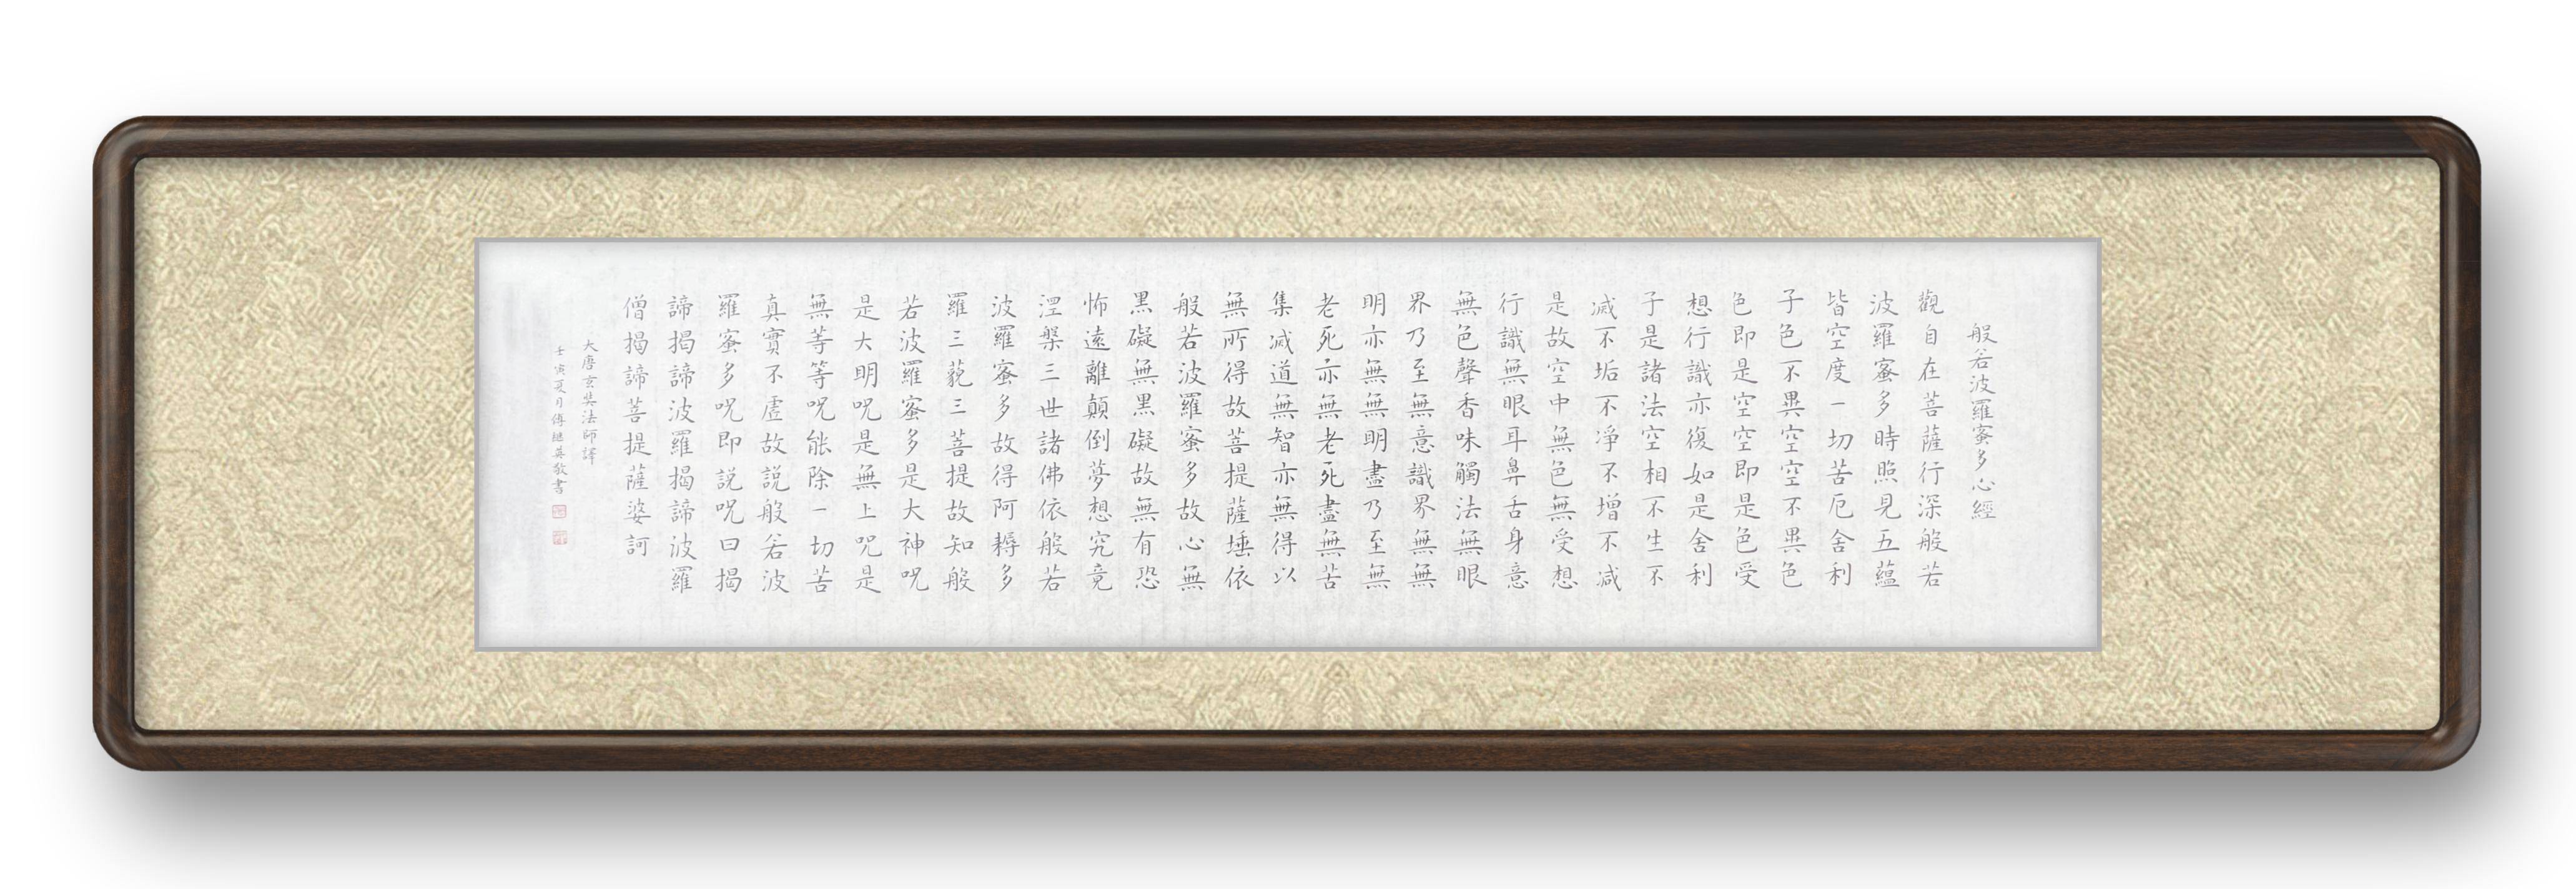 般若波羅蜜多心經
觀自在菩薩行深般若
波羅蜜多時照見五蘊
皆空度一切苦厄舍利
子色不異空空不異色
色即是空空即是色受
想行識亦復如是舍利
子是諸法空相不生不
滅不垢不淨不增不減
是故空中無色無受想
行識無眼耳鼻舌身意
無色聲香味觸法無眼
界乃至無意識界無無
明亦無無明盡乃至無
老死亦無老死盡無苦
集滅道無智亦無得以
無所得故菩提薩埵依
般若波羅蜜多故心無
罣礙無罣礙故無有恐
怖遠離顛倒夢想究竟
涅槃三世諸佛依般若
波羅蜜多故得阿耨多
羅三藐三菩提故知般
若波羅蜜多是大神咒
是大明咒是無上咒是
無等等咒能除一切苦
真實不虛故說般若波
羅蜜多咒即說咒曰揭
諦揭諦波羅揭諦波羅
僧揭諦菩提薩婆訶
大唐玄奘法師譯
壬寅夏月傅継英敬書